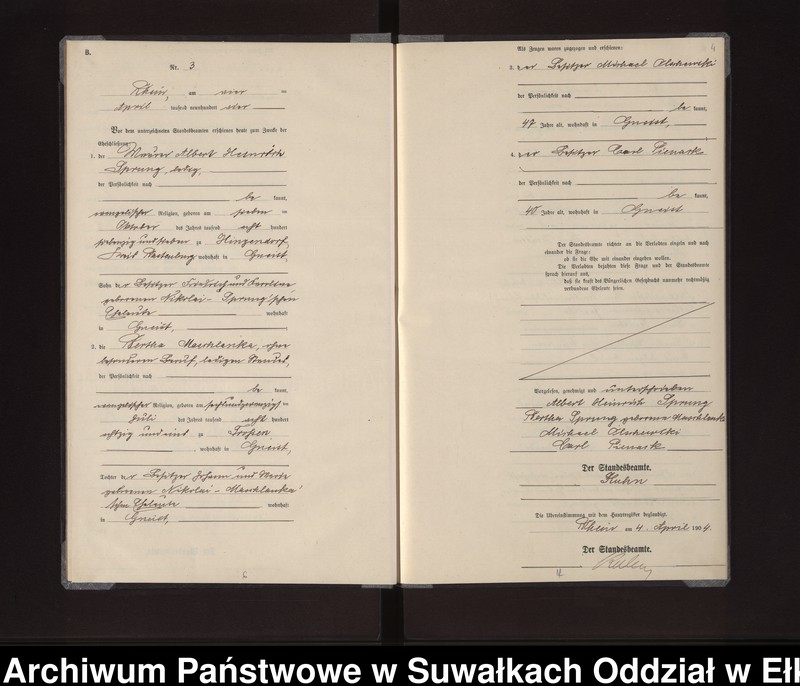 B.
Nr. 3
Rhein, am vier ten
April tausend neunhundert vier
Vor dem unterzeichneten Standesbeamten erschienen heute zum Zwecke der
Eheschließung:
1. der Maurer Albert Heinrich
Sprung, ledig,
der Persönlichkeit nach
be kannt,
evangelischer Religion, geboren am sieben ten
Oktober des Jahres tausend acht hundert
siebenzig und sieben zu Hinzendorf,
Kreis Rastenburg wohnhaft in Gneist
Sohn der Besitzer Friedrich und Karoline
geborenen Nikolai - Sprung'schen
Eheleute wohnhaft
in Gneist,
2. die Hertha Marklanka, ohne
besonderen Beruf, ledigen Standes,
der Persönlichkeit nach
be kannt,
evangelischer Religion, geboren am sechsundzwanzigsten
Juli des Jahres tausend acht hundert
achtzig und eins zu
, wohnhaft in Gneist,
Tochter der Besitzer Johann und
geborenen Nikolai - Marklanka'
schen Eheleute wohnhaft
in Gneist,
6
Als Zeugen waren zugezogen und erschienen:
4
3. der Besitzer Michael
der Persönlichkeit nach
be kannt,
47 Jahre alt, wohnhaft in Gneist,
4. der Besitzer Carl Bienask
der Persönlichkeit nach
be kannt,
40 Jahre alt, wohnhaft in Gneist
Der Standesbeamte richtete an die Verlobten einzeln und nach
einander die Frage:
ob sie die Ehe mit einander eingehen wollen.
Die Verlobten bejahten diese Frage und der Standesbeamte
sprach hierauf aus,
daß sie kraft des Bürgerlichen Gesetzbuchs nunmehr rechtmäßig
verbundene Eheleute seien.
Vorgelesen, genehmigt und unterschrieben
Albert Heinrich Sprung
Hertha Sprung geborene Marklanka
Michael
Carl Bienask
Der Standesbeamte.
Kuhn
Die Übereinstimmung mit dem Hauptregister beglaubigt.
Rhein am 4. April 1904.
Der Standesbeamte.
Kuhn
Archiwum Państwowe w Suwałkach Oddział w Ełk